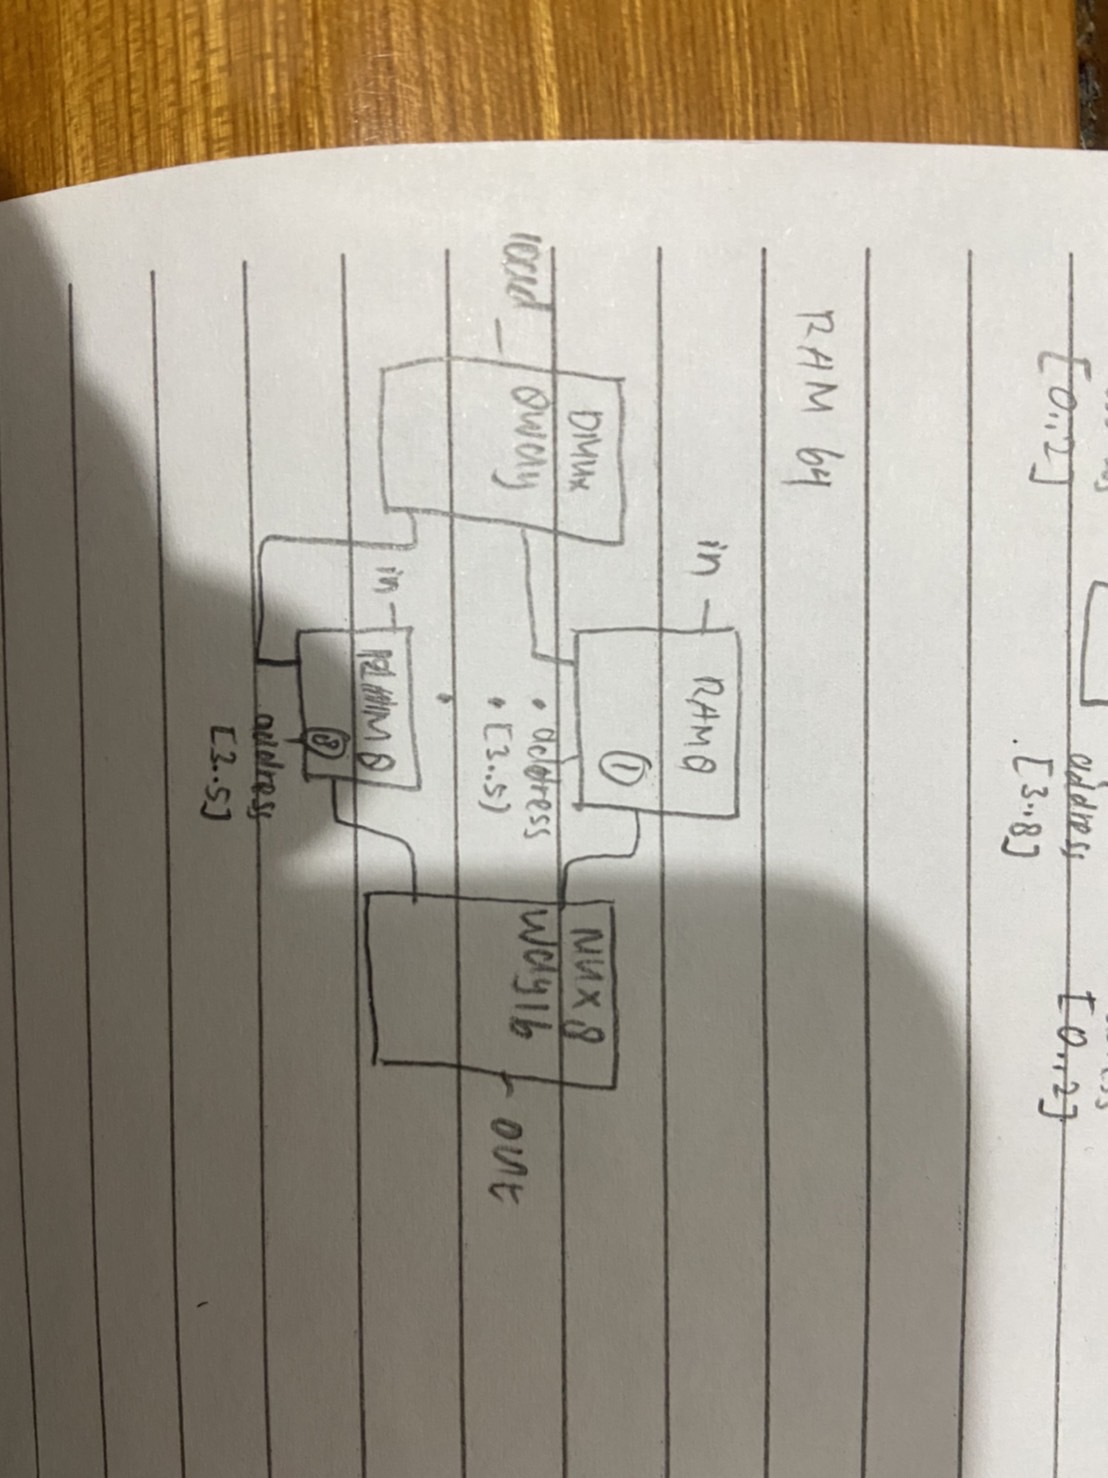 [0..2]
address
[3..8]
[0..2]
RAM 64
in
RAM 8
1
DMUx
8way
load
address
[3..5]
MUX 8
Way16
out
in
RAM 8
8
address
[3..5]